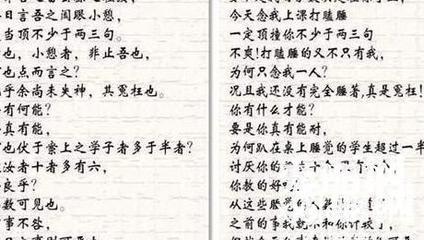 日言吾之闺眼小憩,
当顶不少于两三句
也,小憩者,非止吾也,
也点而言之?
乎余尚未失神,其冤枉也。
有何能?
真有能,
也伏于案上之学子者多于半者?
汝者十者多有六,
良乎?
数可见也。
事不咎,
今天念我上课打瞌睡
一定顶撞你不少于两三句
不爽!打瞌睡的又不只有我,
为何只念我一人?
况且我还没有完全睡著,真是冤枉!
你有什么才能?
要是你真有能耐,
为何趴在桌上睡觉的学生超过一半
讨厌你的
你教的好
从这些睡觉的人数
之前的事我就不和你计较了,